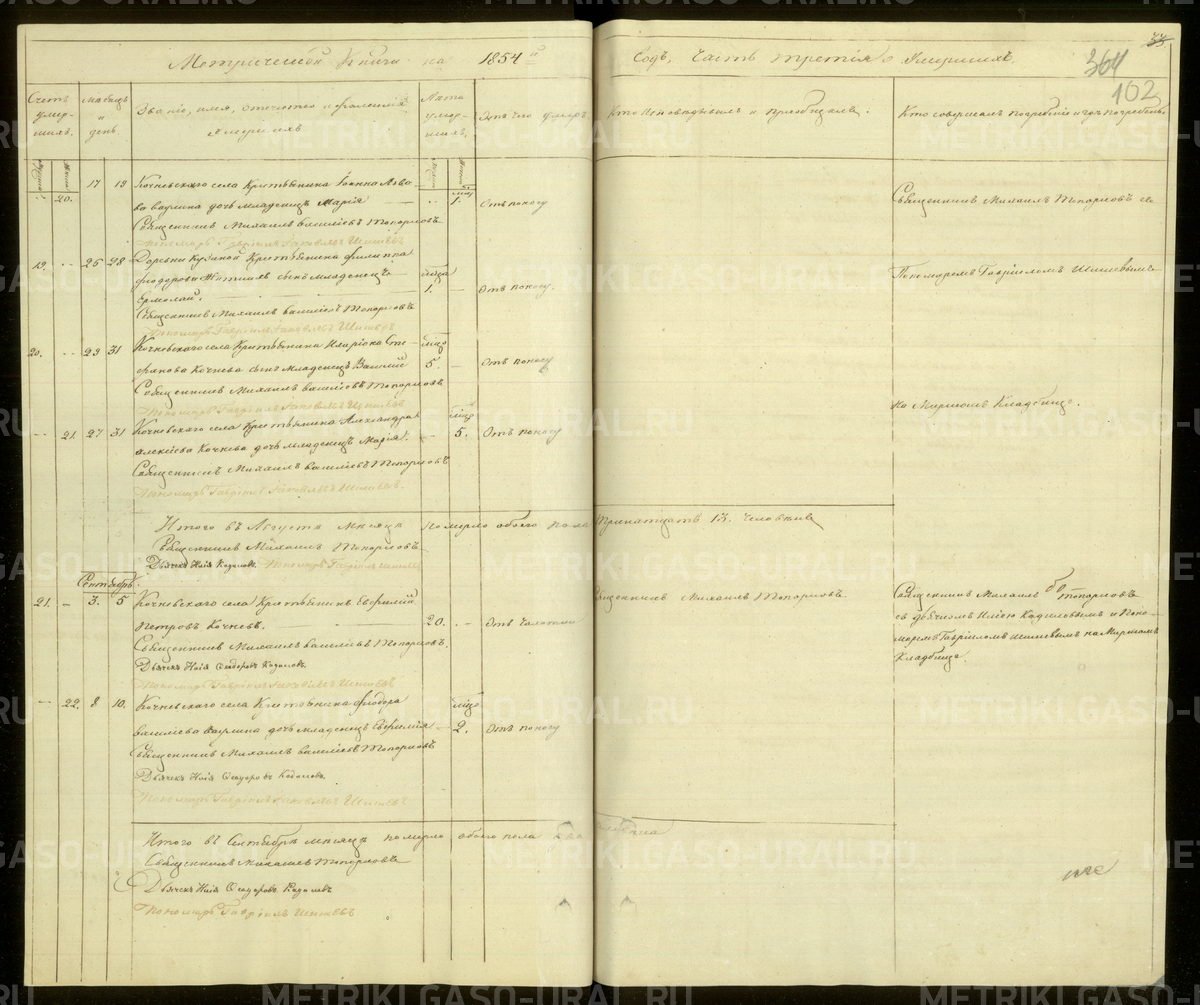 Метрической Книги на 1854й
Годъ, Часть третія о Умершихъ
33.
364
102
Счетъ умер-шихъ.
Мѣсяцъ и день.
Званіе, имя, отечество и фамилія умершихъ
Лѣта умер-шихъ.
Отъ чего умеръ
Кто исповѣдывалъ и пріобщалъ.
Кто совершалъ погребеніе и гдѣ погребены.
20. 17 19 Кочневскаго села Крестьянина Іоанна
дочь младенецъ Марія 1. Отъ поносу
Священникъ Михаилъ Василіевъ Топорковъ
Пономарь Гавріилъ Яковлевъ Шишевъ
Священникъ Михаилъ Топорковъ съ
19. 25 28 Деревни Крестьянина Филиппа
Ѳеодорова сынъ младенецъ
Ермолай. 1. Отъ поносу.
Священникъ Михаилъ Василіевъ Топорковъ
Пономарь Гавріилъ Яковлевъ Шишевъ
Пономаремъ Гавріиломъ Шишевымъ
20. 29 31 Кочневскаго села Крестьянина Иларіона Сте-
фанова Кочнева сынъ младенецъ 5. Отъ поносу
Священникъ Михаилъ Василіевъ Топорковъ
Пономарь Гавріилъ Яковлевъ Шишевъ
на Мирскомъ Кладбище.
21. 27 31 Кочневскаго села Крестьянина Александра
Алексіева Кочнева дочь младенецъ Марія. 5. Отъ поносу
Священникъ Михаилъ Василіевъ Топорковъ
Пономарь Гавріилъ Яковлевъ Шишевъ.
Итого въ Августѣ мѣсяцѣ померло обоего пола тринатцать 13. человѣкъ
Священникъ Михаилъ Топорковъ
Дьячекъ Илія Кадиловъ. Пономарь Гавріилъ Шишевъ
Сентябрь.
21. 3. 5 Кочневскаго села Крестьянинъ
Петровъ Кочневъ. 20. Отъ чахотки
Священникъ Михаилъ Василіевъ Топорковъ.
Дьячекъ Илія Ѳеодоровъ Кадиловъ.
Пономарь Гавріилъ Яковлевъ Шишевъ
Священникъ Михаилъ Топорковъ.
Священникъ Михаилъ Топорковъ
съ дьячкомъ Иліею Кадиловымъ и Поно-
маремъ Гавріиломъ Шишевымъ на Мирскомъ
Кладбище.
22. 8 10. Кочневскаго села Крестьянина Ѳеодора
Василіева дочь младенецъ 2. Отъ поносу
Священникъ Михаилъ Василіевъ Топорковъ
Дьячекъ Илія Ѳеодоровъ Кадиловъ.
Пономарь Гавріилъ Яковлевъ Шишевъ
Итого въ Сентябрѣ мѣсяцѣ померло обоего пола два человѣка
Священникъ Михаилъ Топорковъ
Дьячекъ Илія Ѳеодоровъ Кадиловъ
Пономарь Гавріилъ Шишевъ
METRIKI.GASO-URAL.RU